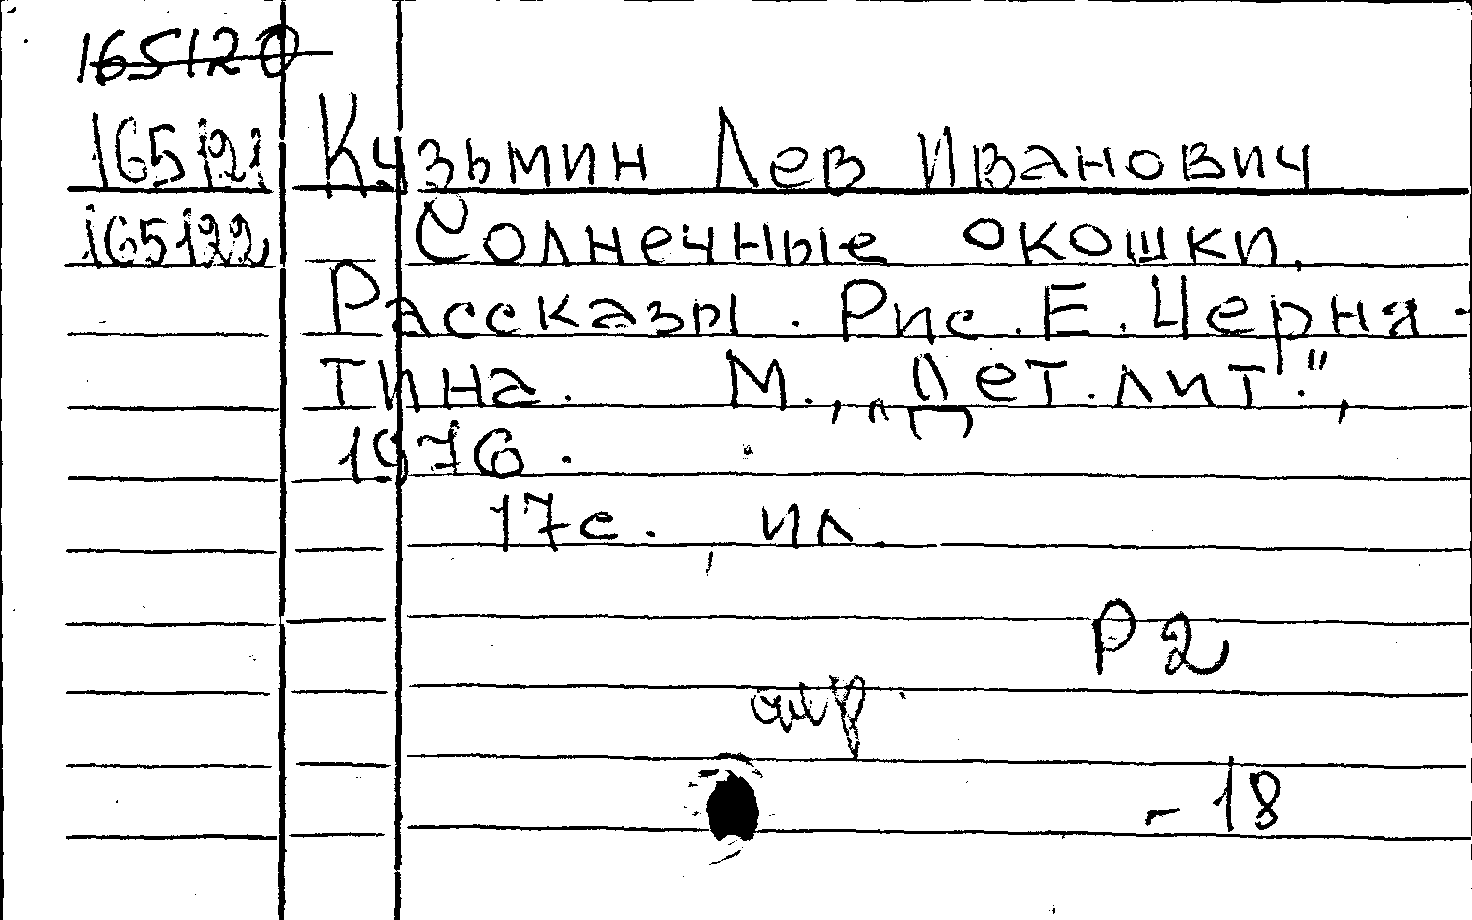 165120
165121 Кузьмин Лев Иванович
165122 Солнечные окошки.
Рассказы. Рис. Е. Черня-
тина. М., „Дет. лит.",
1976.
17с. ил.
Р2
-18